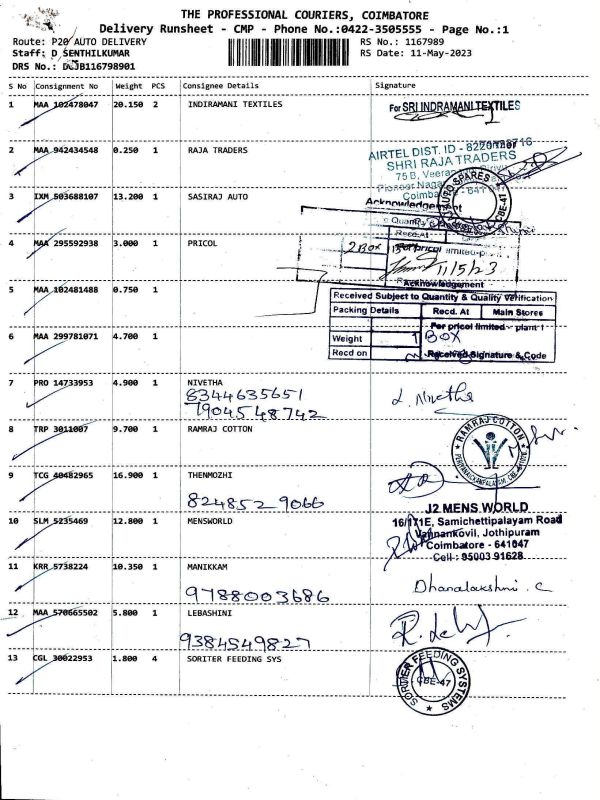 THE PROFESSIONAL COURIERS, COIMBATORE
Delivery Runsheet - CMP - Phone No.:0422-3505555 - Page No.:1
Route: P20 AUTO DELIVERY
RS No.: 1167989
Staff: D SENTHILKUMAR
RS Date: 11-May-2023
DRS No.: DCJB116798901
S No Consignment No Weight PCS Consignee Details Signature
1 MAA 102478047 20.150 2 INDIRAMANI TEXTILES
For SRI INDRAMANI TEXTILES
2 MAA 942434548 0.250 1 RAJA TRADERS
AIRTEL DIST. ID -
SHRI RAJA TRADERS
75 B,
Pioneer Nagar
3 IXM 503688107 13.200 1 SASIRAJ AUTO
AUTO SPARES
CBE-47
Acknowledgement
Recd.At
4 MAA 295592938 3.000 1 PRICOL
2 BOX
For pricol limited-p
11/5/23
5 MAA 102481488 0.750 1
Acknowledgement
Received Subject to Quantity & Quality Verification
Packing Details Recd. At Main Stores
For pricol limited - plant 1
6 MAA 299781071 4.700 1
Weight 1 BOX
Recd on Received Signature & Code
7 PRO 14733953 4.900 1 NIVETHA
8344635651
7904548742
L Nivetha
8 TRP 3011007 9.700 1 RAMRAJ COTTON
RAMRAJ COTTON
9 TCG 40482965 16.900 1 THENMOZHI
8248529066
10 SLM 5235469 12.800 1 MENSWORLD
J2 MENS WORLD
16/171E, Samichettipalayam Road
Vannankovil, Jothipuram
Coimbatore - 641047
Cell : 95003 91628
11 KRR 5738224 10.350 1 MANIKKAM
9788003686
Dhanalakshmi. C
12 MAA 570665502 5.800 1 LEBASHINI
9384549827
13 CGL 30022953 1.800 4 SORITER FEEDING SYS
SORITER FEEDING SYSTEMS
CBE-47